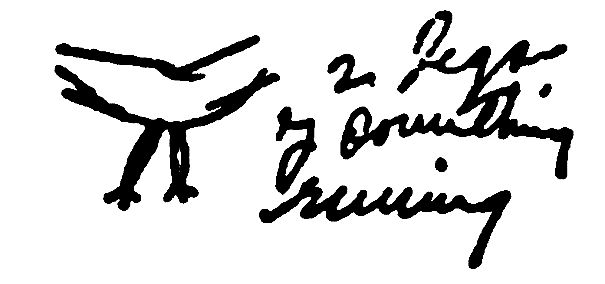 2 legs
of something
running